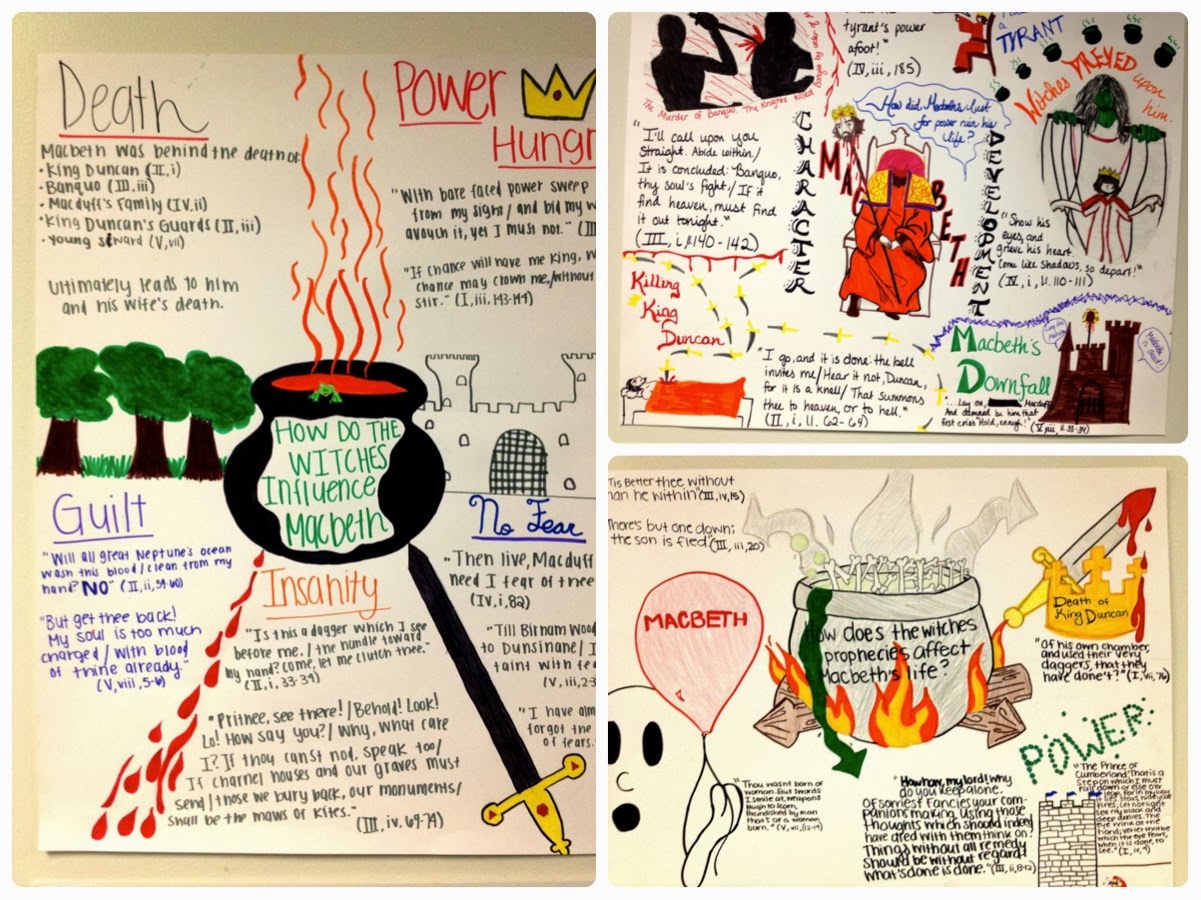 Death
Macbeth was behind the death of:
• King Duncan (II, i)
• Banquo (III, iii)
• Macduff's Family (IV, ii)
• King Duncan's Guards (II, iii)
• Young Siward (V, vii)
Ultimately leads to him
and his wife's death.
Power
Hungr
"With bare faced power sweep
from my sight/ and bid my w
avouch it, yet I must not." (III
"If chance will have me King, w
chance may crown me, /without
stir." (I, iii, 143-144)
HOW DO THE
WITCHES
Influence
Macbeth
Guilt
"Will all great Neptune's ocean
wash this blood / clean from my
hand? NO" (II, ii, 59-60)
"But get thee back!
My soul is too much
charged / with blood
of thine already."
(V, viii, 5-6)
Insanity
"Is this a dagger which I see
before me, / the handle toward
my hand? Come, let me clutch thee."
(II, i, 33-34)
"Prithee, see there! / Behold! Look!
Lo! How say you? / Why, what care
I? If thou canst nod, speak too/
If charnel houses and our graves must
send / those we bury back, our monuments/
shall be the maws of kites."
(III, iv. 69-74)
No Fear
"Then live, Macduff
need I fear of thee
(IV, i, 82)
"Till Birnam Wood
to Dunsinane/ I
taint with fea
(V, iii, 2-3
"I have alm
forgot the
of fears.
The Murder of Banquo. The Knights killed Banquo by order of M
tyrant's power
afoot!"
(IV, iii, 185)
a
TYRANT
Witches PREYED upon
him.
"I'll call upon you
straight. Abide within/
It is concluded: "Banquo,
thy soul's flight,/ If it
find heaven, must find
it out tonight."
(III, i, ll. 140-142)
CHARACTER
MACBETH
DEVELOPMENT
How did Macbeth's lust
for power ruin his
life?
"Show his
eyes, and
grieve his heart.
Come like Shadows, so depart!"
(IV, i, ll. 110-111)
Killing
King
Duncan
"I go, and it is done: the bell
invites me/ Hear it not, Duncan,
for it is a knell/ That summons
thee to heaven, or to hell."
(II, i, ll. 62-64)
Macbeth's
Downfall
"...Lay on, Macduff
And damned be him that
first cries "Hold, enough!"
(V, viii, ll. 33-34)
'Tis Better thee without
han he within" (III, iv, 15)
"There's but one down;
the son is fled." (III, iii, 20)
MACBETH
MACBETH
How does the witches
prophecies affect
Macbeth's life?
Death of
King Duncan
"Of his own chamber,
and used their very
daggers, that they
have done't?" (I, vii, 76)
POWER
"Thou wasnt born of
woman. But swords
I smile at, weapons
laugh to scorn,
Brandished by man
that's of a woman
born." (V, vii, 12-14)
"How now, my lord! Why
do you keep alone.
Of sorriest fancies your com-
panions making, Using those
thoughts which should indeed
have died with them think on?
Things without all remedy
Should be without regard:
what's done is done." (III, ii, 8-12)
"The Prince of
Cumberland! That is a
step on which I must
fall down or else o'er
leap, For in my way
it lies. Stars, hide your
fires; Let not light
see my black and
deep desires. The
eye wink at the
hand; yet let that be
which the eye fears,
when it is done, to
see." (I, iv, 4)